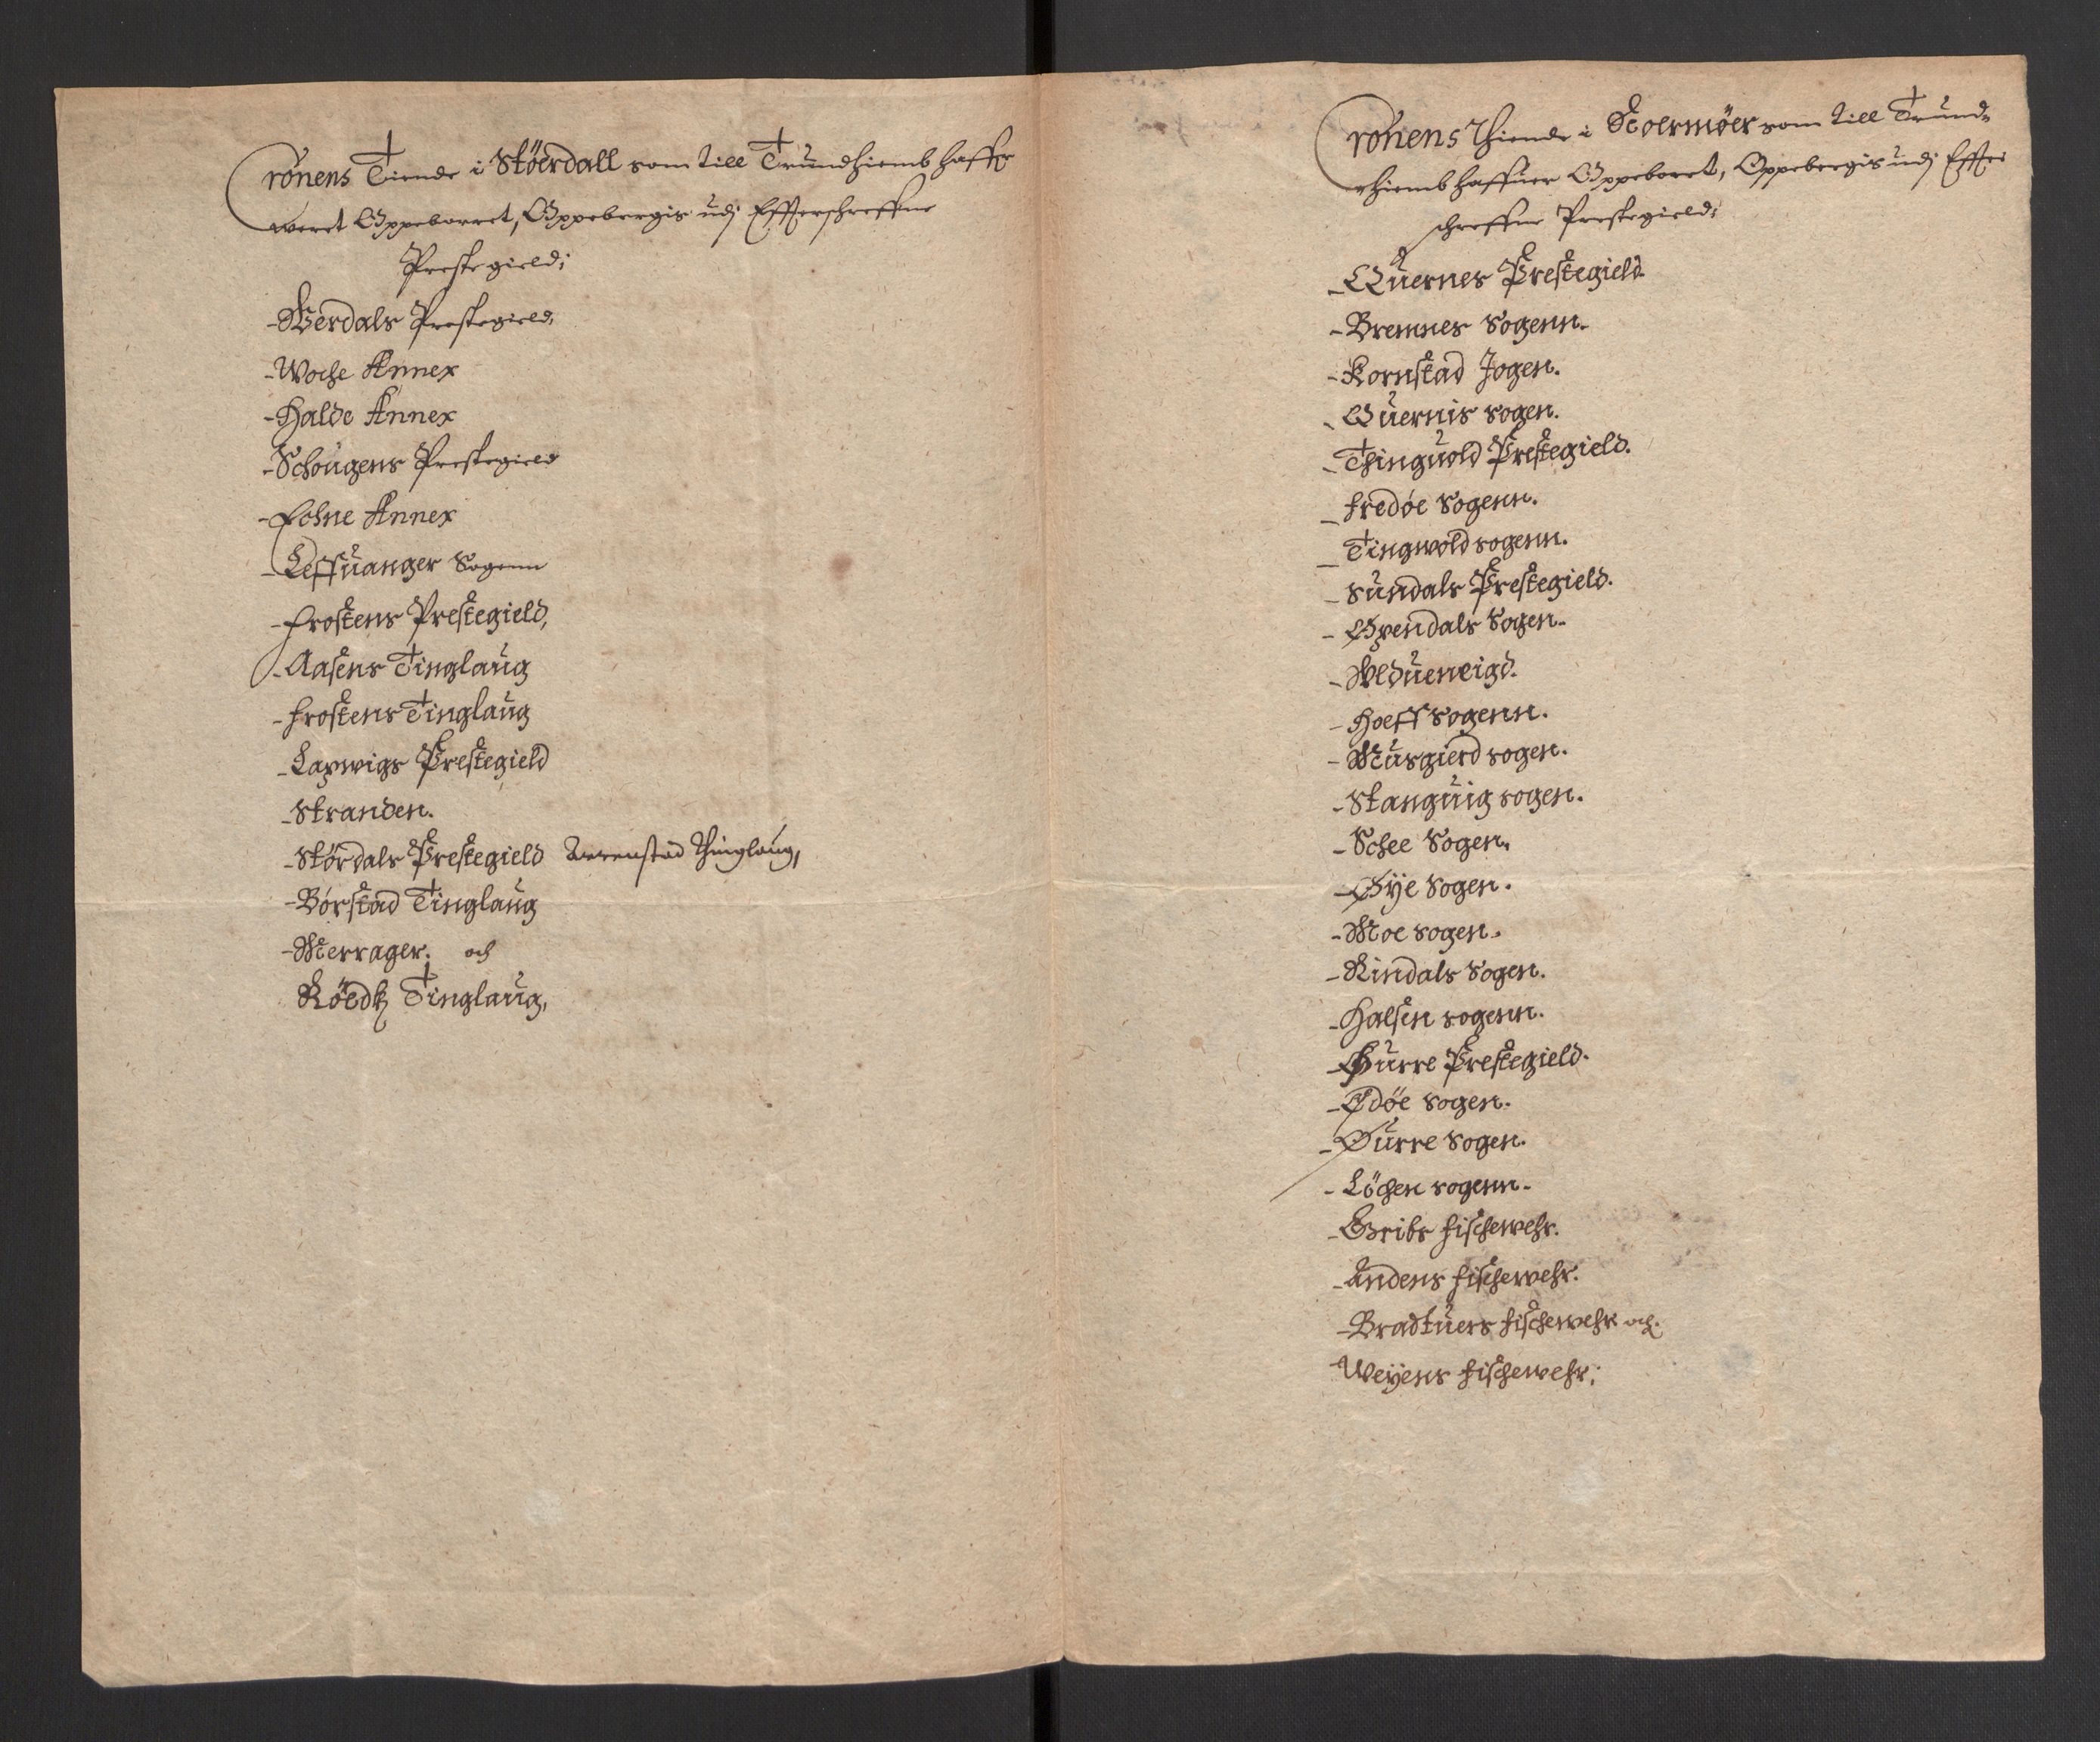 Crónens Tiende i Stöerdall som till Trundhiemb haffr
weret Oppeborret, Oppebergis udj Effterschreffne
Prestegield;
-Werdals Prestegield,
-Woche Annex
-Halde Annex
-Schougens Prestegield
-Echne Annex
-Leffuanger Sogenn
-Frostens Prestegield,
-Aasens Tinglaug
-Frostens Tinglaug
-Laxwigs Prestegield
-Stranden.
-Stördals Prestegield Werenstad Thinglaug,
-Börstad Tinglaug
-Merrager. och
Röedtz Tinglaug,
Crónens Thiende i Noermöer som till Trund-
hiemb haffuer Oppeboret, Oppebergis udj Effter
schreffne Prestegield;
-Quernes Prestegield
-Bremnes Sogenn.
-Kornstad Sogen.
-Quernis sogen.
-Thinguold Prestegield.
-Fredöe Sogenn.
-Tingwold sogenn.
-Sundals Prestegield.
-Öxendals Sogen.
-Uldueneigd.
-Hoeff Sogenn.
-Müsgierd sogen.
-Stanguig sogen.
-Schee Sogen.
-Öÿe Sogen.
-Moe sogen.
-Rindals Sogen.
-Halsen sogenn.
-Öurre Prestegield.
-Edöe Sogen.
-Öurre Sogen.
-Löchen sogenn.
-Gribs Fischewehr.
-Andens Fischewehr.
-Bradtuers Fischewehr och.
Weÿens Fischewehr;